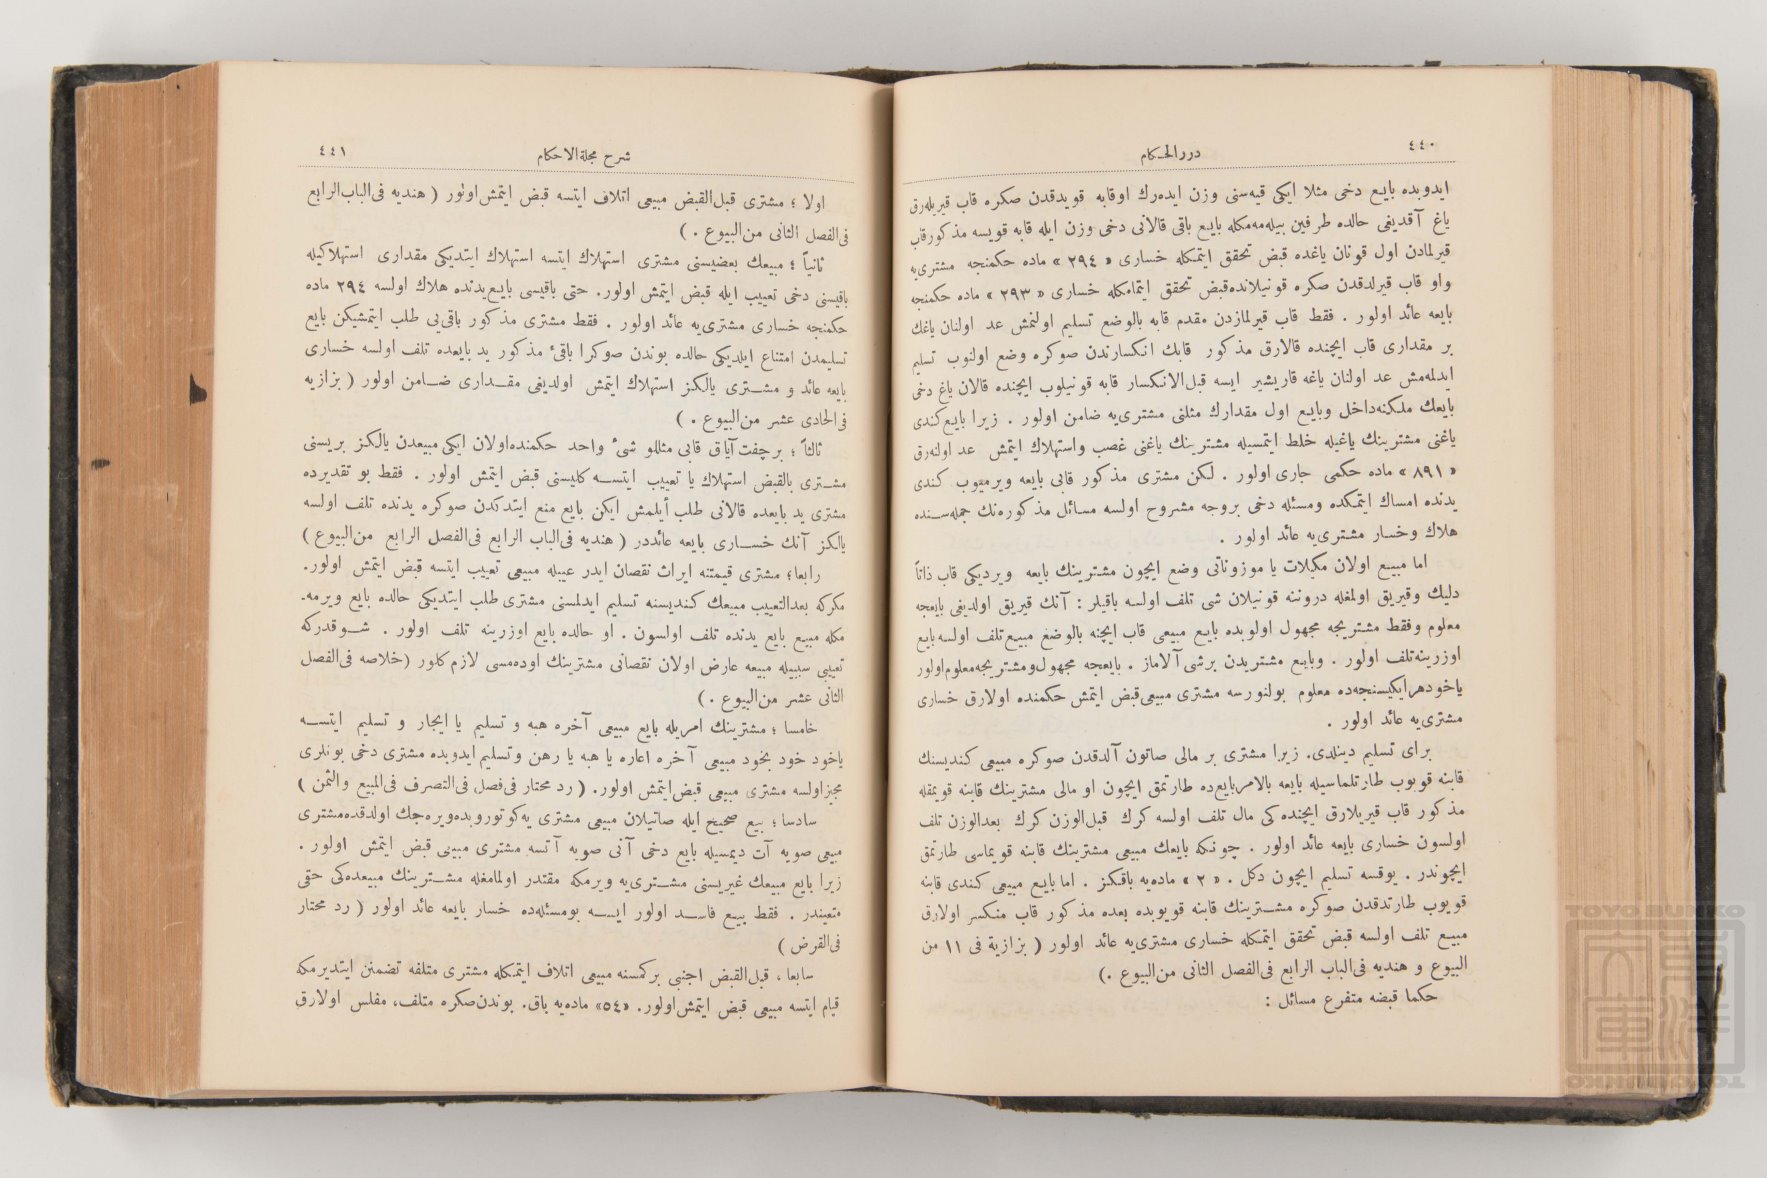 ٤٤٠
دررالحكام
ايدوبده بايع دخى مثلا ايكى قيه‌سنى وزن ايده‌رك اوقابه قويدقدن صكره قاب قيريله‌رق
ياغ آقديغى حالده طرفين بيله‌مه‌مكله بايع باقى قالانى دخى وزن ايله قابه قويسه مذكورقاب
قيرلمادن اول قونان ياغده قبض تحقق ايتمكله خسارى « ٢٩٤ » ماده حكمنجه مشترى‌يه
واو قاب قيرلدقدن صكره قونيلانده‌قبض تحقق ايتمامكله خسارى « ٢٩٣ » ماده حكمنجه
بايعه عائد اولور . فقط قاب قيرلمازدن مقدم قابه بالوضع تسليم اولنمش عد اولنان ياغك
بر مقدارى قاب ايچنده قالارق مذكور قابك انكسارندن صوكره وضع اولنوب تسليم
ايدلمه‌مش عد اولنان ياغه قاريشير ايسه قبل‌الانكسار قابه قونيلوب ايچنده قالان ياغ دخى
بايعك ملكنه‌داخل وبايع اول مقدارك مثلنى مشترى‌يه ضامن اولور . زيرا بايع‌كندى
ياغنى مشترينك ياغيله خلط ايتمسيله مشترينك ياغنى غصب واستهلاك ايتمش عد اولنه‌رق
« ٨٩١ » ماده حكمى جارى اولور . لكن مشترى مذكور قابى بايعه ويرميوب كندى
يدنده امساك ايتمكده ومسئله دخى بروجه مشروح اولسه مسائل مذكوره‌نك جمله‌سنده
هلاك وخسار مشترى‌يه عائد اولور .
اما مبيع اولان مكيلات يا موزوناتى وضع ايچون مشترينك بايعه ويرديكى قاب ذاتاً
دليك وقيريق اولمغله دروننه قونيلان شى تلف اولسه باقيلر : آنك قيريق اولديغى بايعجه
معلوم وفقط مشتريجه مجهول اولوبده بايع مبيعى قاب ايچنه بالوضع مبيع‌تلف اولسه‌بايع
اوزرينه‌تلف اولور . وبايع مشتريدن برشى آلاماز . بايعجه مجهول‌ومشتريجه‌معلوم‌اولور
ياخودهرايكيسنجه‌ده معلوم بولنورسه مشترى مبيعى‌قبض ايتمش حكمنده اولارق خسارى
مشترى‌يه عائد اولور .
براى تسليم دينلدى. زيرا مشترى بر مالى صاتون آلدقدن صوكره مبيعى كنديسنك
قابنه قويوب طارتلماسيله بايعه بالامربايع‌ده طارتمق ايچون او مالى مشترينك قابنه قويمغله
مذكور قاب قيريلارق ايچنده‌كى مال تلف اولسه كرك قبل‌الوزن كرك بعدالوزن تلف
اولسون خسارى بايعه عائد اولور . چونكه بايعك مبيعى مشترينك قابنه قويماسى طارتمق
ايچوندر . يوقسه تسليم ايچون دكل . « ٢ » ماده‌يه باقكز . اما بايع مبيعى كندى قابنه
قويوب طارتدقدن صوكره مشترينك قابنه قويوبده بعده مذكور قاب منكسر اولارق
مبيع تلف اولسه قبض تحقق ايتمكله خسارى مشترى‌يه عائد اولور ( بزازية فى ١١ من
البيوع و هنديه فى‌الباب الرابع فى‌الفصل الثانى من‌البيوع .)
حكما قبضه متفرع مسائل :
٤٤١
شرح مجلةالاحكام
اولا ؛ مشترى قبل‌القبض مبيعى اتلاف ايتسه قبض ايتمش‌اولور ( هنديه فى‌الباب‌الرابع
فى‌الفصل الثانى من‌البيوع . )
ثانياً ؛ مبيعك بعضيسنى مشترى استهلاك ايتسه استهلاك ايتديكى مقدارى استهلاكيله
باقيسنى دخى تعييب ايله قبض ايتمش اولور. حتى باقيسى بايع‌يدنده هلاك اولسه ٢٩٤ ماده
حكمنجه خسارى مشترى‌يه عائد اولور . فقط مشترى مذكور باقى‌يى طلب ايتمشيكن بايع
تسليمدن امتناع ايلديكى حالده بوندن صوكرا باقئ مذكور يد بايعده تلف اولسه خسارى
بايعه عائد و مشترى يالكز استهلاك ايتمش اولديغى مقدارى ضامن اولور ( بزازيه
فى‌الحادى عشر من‌البيوع . )
ثالثاً ؛ برچفت‌آياق قابى مثللو شئ واحد حكمنده‌اولان ايكى‌مبيعدن يالكز بريسنى
مشترى بالقبض استهلاك يا تعييب ايتسه كليسنى قبض ايتمش اولور . فقط بو تقديرده
مشترى يد بايعده قالانى طلب أيلمش ايكن بايع منع ايتدكدن صوكره يدنده تلف اولسه
يالكز آنك خسارى بايعه عائددر ( هنديه فى‌الباب الرابع فى‌الفصل الرابع من‌البيوع )
رابعا؛ مشترى قيمتنه ايراث نقصان ايدر عيبله مبيعى تعييب ايتسه قبض ايتمش اولور.
مكركه بعدالتعييب مبيعك كنديسنه تسليم ايدلمسنى مشترى طلب ايتديكى حالده بايع ويرمه‌-
مكله مبيع بايع يدنده تلف اولسون . او حالده بايع اوزرينه تلف اولور . شوقدركه
تعييبى سببيله مبيعه عارض اولان نقصانى مشترينك اوده‌مسى لازم‌كلور (خلاصه فى‌الفصل
الثانى عشر من‌البيوع .)
خامسا ؛ مشترينك امريله بايع مبيعى آخره هبه و تسليم يا ايجار و تسليم ايتسه
ياخود خود بخود مبيعى آخره اعاره يا هبه يا رهن وتسليم ايدوبده مشترى دخى بونلرى
مجيزاولسه مشترى مبيعى قبض‌ايتمش اولور. ( رد محتار فى‌فصل فى‌التصرف فى‌المبيع والثمن )
سادسا ؛ بيع صحيح ايله صاتيلان مبيعى مشترى يه‌كوتوروبده‌ويره‌جك اولدقده‌مشترى
مبيعى صويه آت ديمسيله بايع دخى آنى صويه آتسه مشترى مبيعى قبض ايتمش اولور .
زيرا بايع مبيعك غيريسنى مشترى‌يه ويرمكه مقتدر اولمامغله مشترينك مبيعده‌كى حقى
متعيندر . فقط بيع فاسد اولور ايسه بومسئله‌ده خسار بايعه عائد اولور ( رد محتار
فى‌القرض )
سابعا ، قبل‌القبض اجنبى بركمسنه مبيعى اتلاف ايتمكله مشترى متلفه تضمنن ايتديرمكه
قيام ايتسه مبيعى قبض ايتمش‌اولور. «٥٤» ماده‌يه باق. بوندن‌صكره متلف، مفلس اولارق
TOYO BUNKO
東洋文庫
TOYO BUNKO